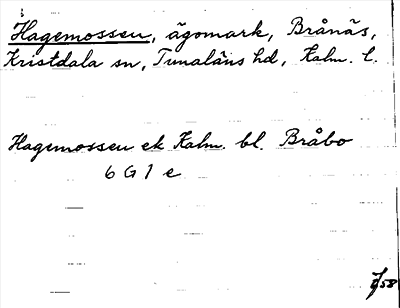 Hagemossen, ägomark, Brånäs,
Kristdala sn, Tunaläns hd, Kalm. l.
Hagemossen ek Kalm. bl. Bråbo
6 G 1 e
58